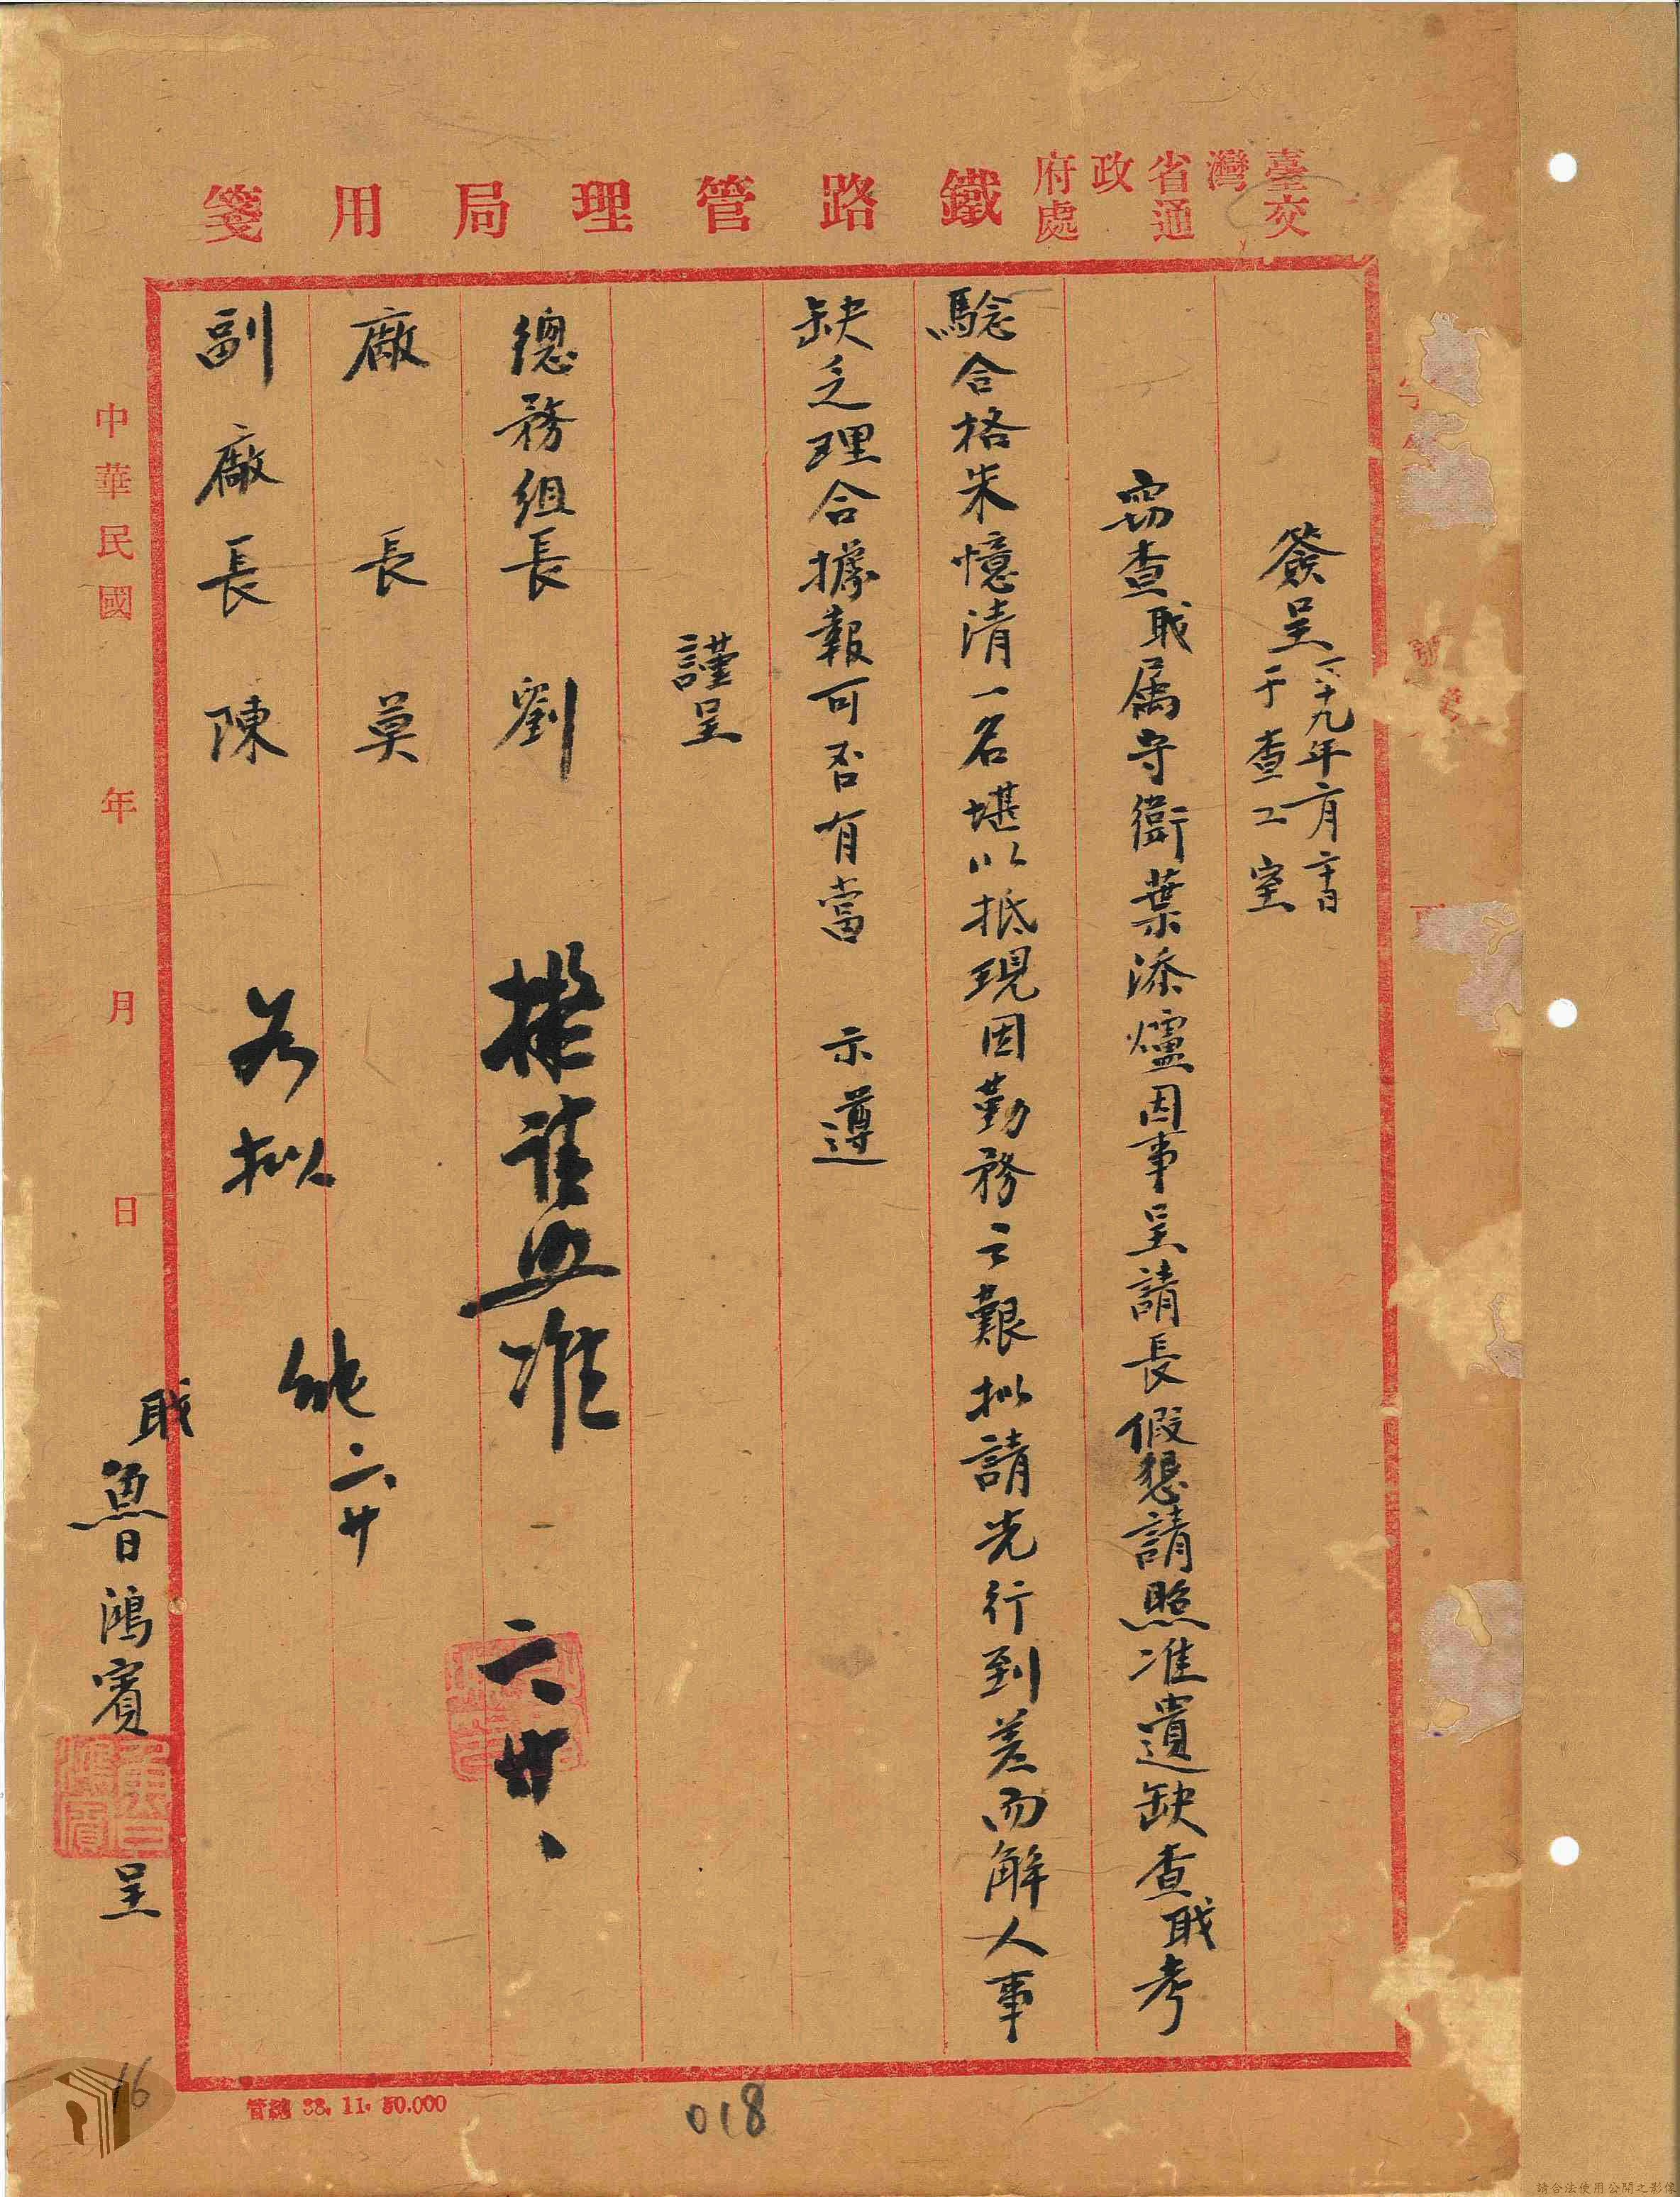 臺灣省政府交通處鐵路管理局用箋
簽呈 卅九年六月二十日
于查工室
竊查职属守衛葉添爐因事呈請長假懇請照准遺缺查职考
驗合格朱憶清一名堪以抵現因勤務云艱拟請先行到差而解人事
缺乏理合據報可否有當 示遵
謹呈
總務組長 劉
擬請照准
六廿、
廠 長 莫
副廠長 陳
若拟
六廿
职 魯鴻賓 呈
中華民國 年 月 日
管總 38. 11. 50.000
018
16
請合法使用公開之影像